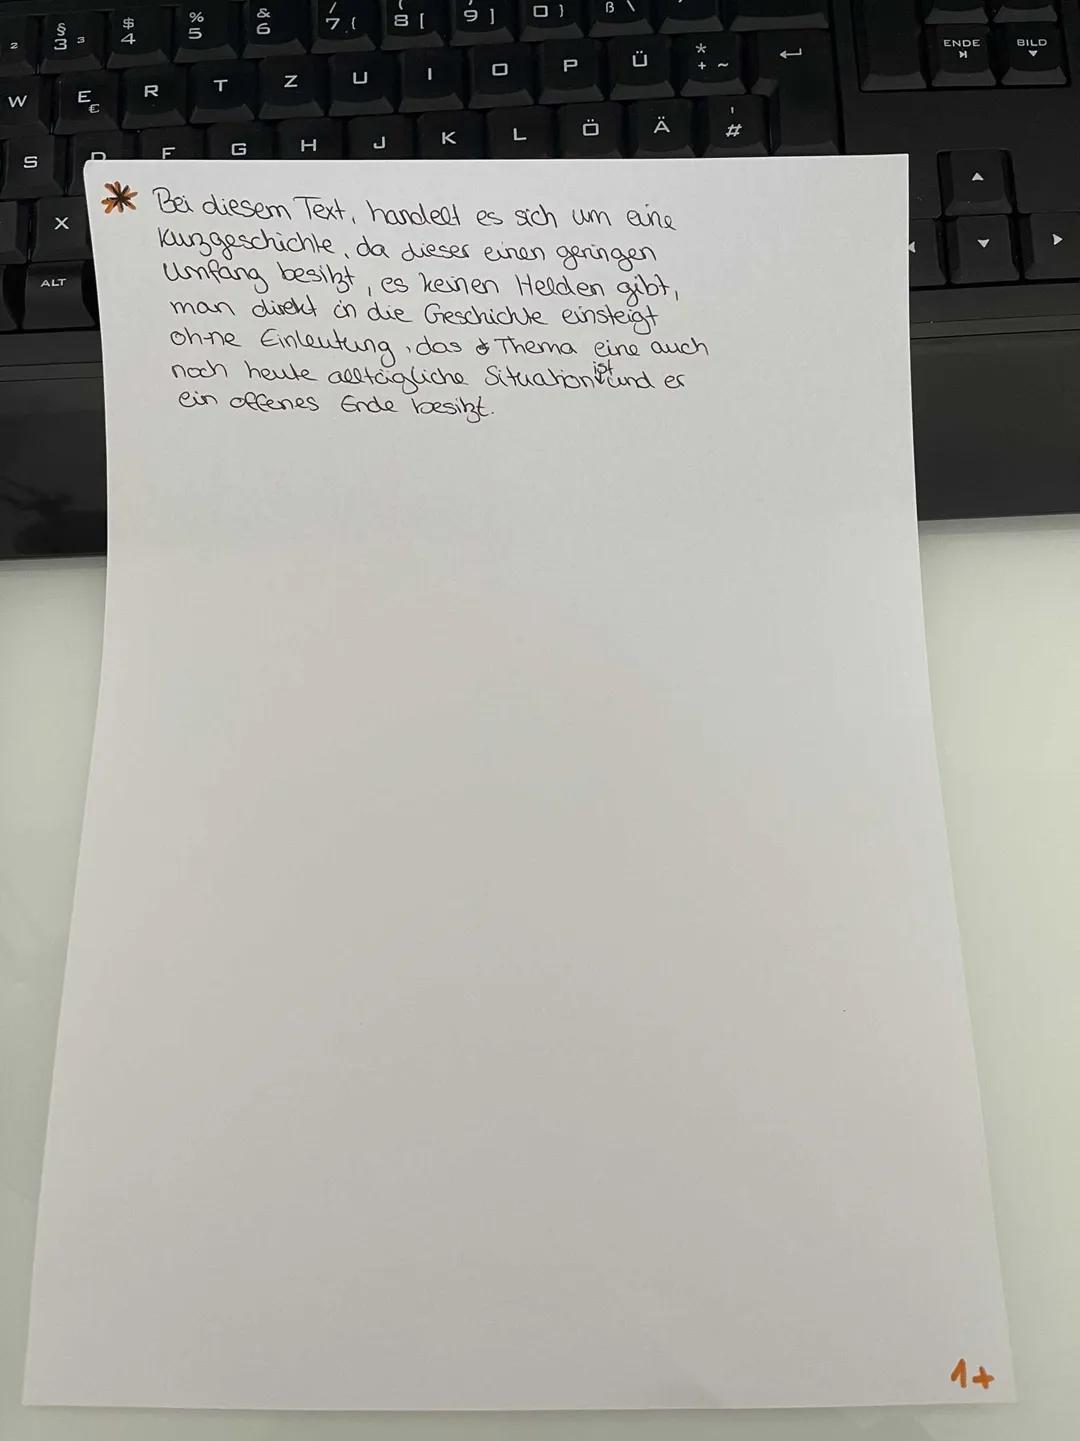 2 § 3 3 $ 4 % 5 & 6 / 7 { ( 8 [ ) 9 ] 0 } ß \
W E € R T Z U I O P Ü * + ~ ENDE BILD
S D F G H J K L Ö Ä ' #
X
ALT
Bei diesem Text, handelt es sich um eine
Kurzgeschichte, da dieser einen geringen
Umfang besitzt, es keinen Helden gibt,
man direkt in die Geschichte einsteigt
ohne Einleutung, das Thema eine auch
noch heute alltägliche Situation ist und er
ein offenes Ende besitzt.
1+